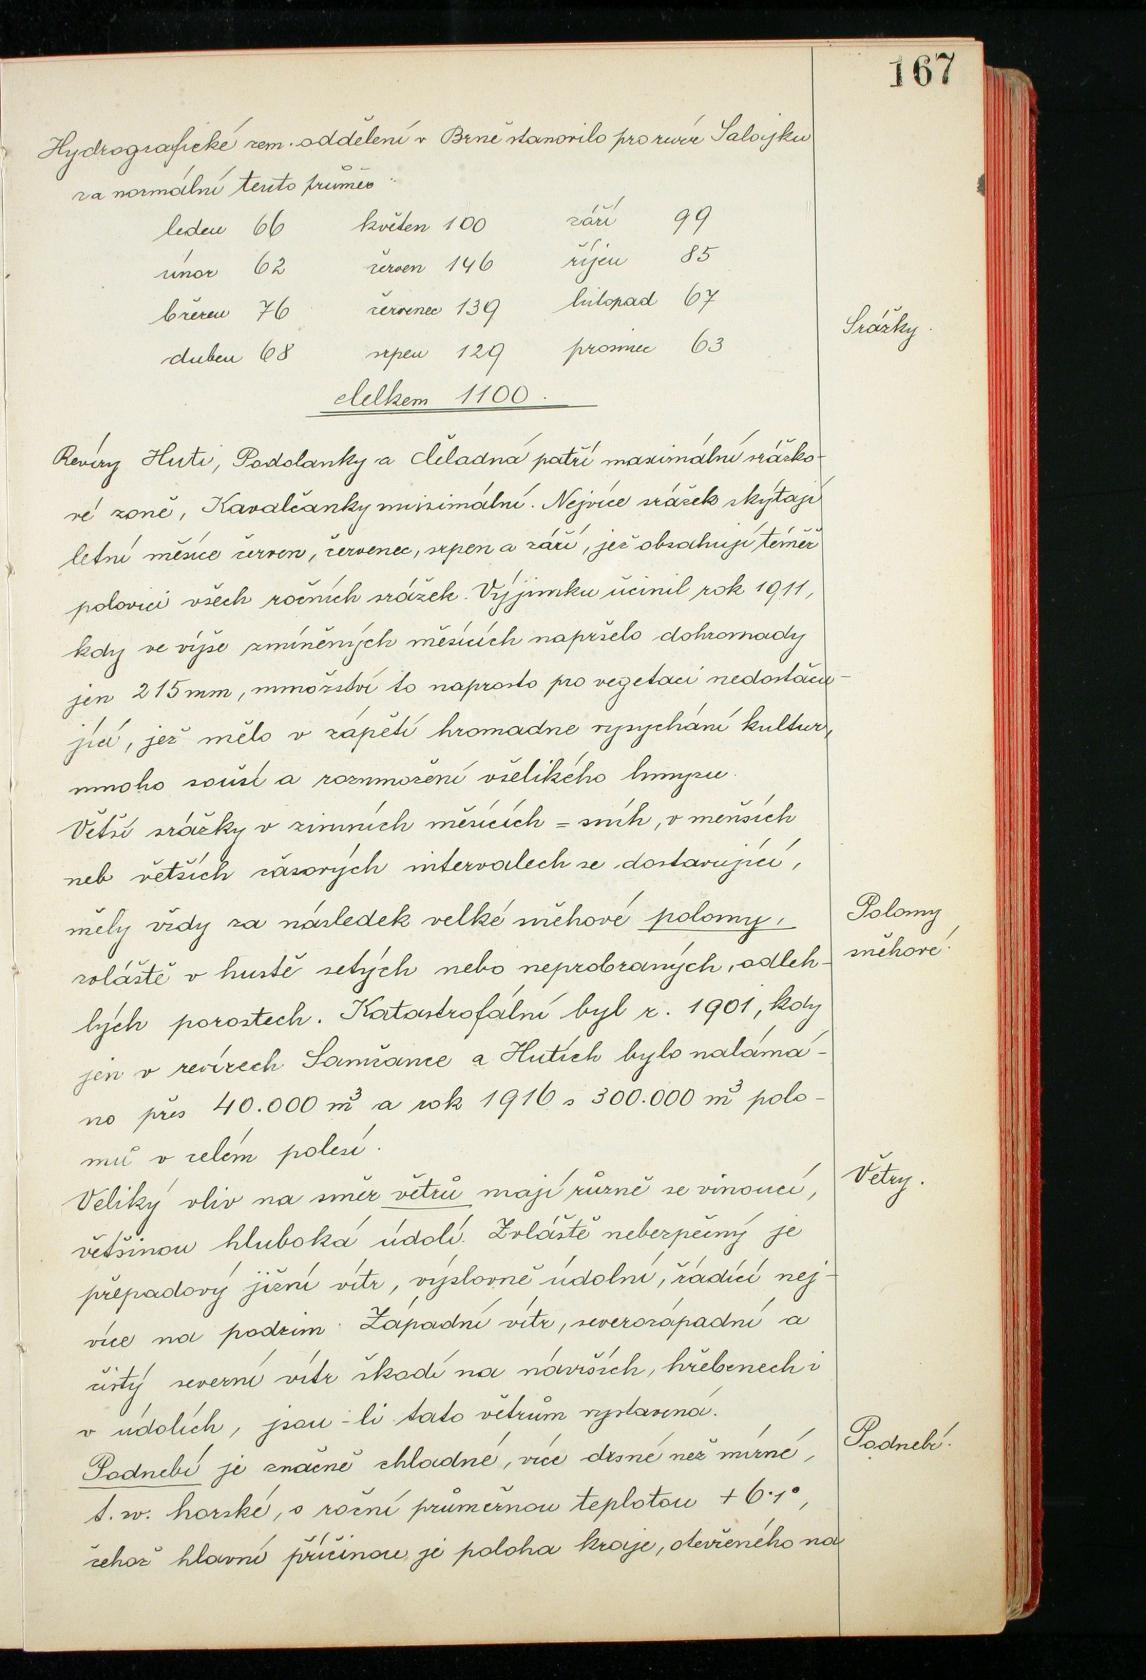 167
Hydrografické zem. oddělení v Brně stanovilo pro revír Salajku
za normální tento průměr:
leden 66 květen 100 září 99
únor 62 červen 146 říjen 85
březen 76 červenec 139 listopad 67
Srážky.
duben 68 srpen 129 prosinec 63
Celkem 1100.
Revíry Huti, Podolanky a Čeladná patří maximální srážko-
vé zoně, Kavalčanky minimální. Nejvíce srážek skýtají
letní měsíce červen, červenec, srpen a září, jež obsahují téměř
polovici všech ročních srážek. Výjimku učinil rok 1911,
kdy ve výše zmíněných měsících napršelo dohromady
jen 215 mm, množství to naprosto pro vegetaci nedostaču-
jící, jež mělo v zápětí hromadne vysychání kultur,
mnoho souší a rozmnožení všelikého hmyzu.
Větší srážky v zimních měsících = sníh, v menších
neb větších časových intervalech se dostavující,
měly vždy za následek velké sněhové polomy,
Polomy
sněhové.
zvláště v hustě setých nebo neprobraných, odleh-
lých porostech. Katastrofální byl r. 1901, kdy
jen v revírech Samčance a Hutích bylo naláma-
no přes 40.000 m³ a rok 1916 s 300.000 m³ polo-
mů v celém polesí.
Větry.
Veliký vliv na směr větrů mají různě se vinoucí,
většinou hluboká údolí. Zvláště nebezpečný je
přepadový jižní vítr, výslovně údolní, řádící nej-
více na podzim. Západní vítr, severozápadní a
čistý severní vítr škodí na návrších, hřebenech i
v údolích, jsou-li tato větrům vystavená.
Podnebí.
Podnebí je značně chladné, více drsné než mírné,
t. zv. horské, s roční průměrnou teplotou +6·1°,
čehož hlavní příčinou je poloha kraje, otevřeného na